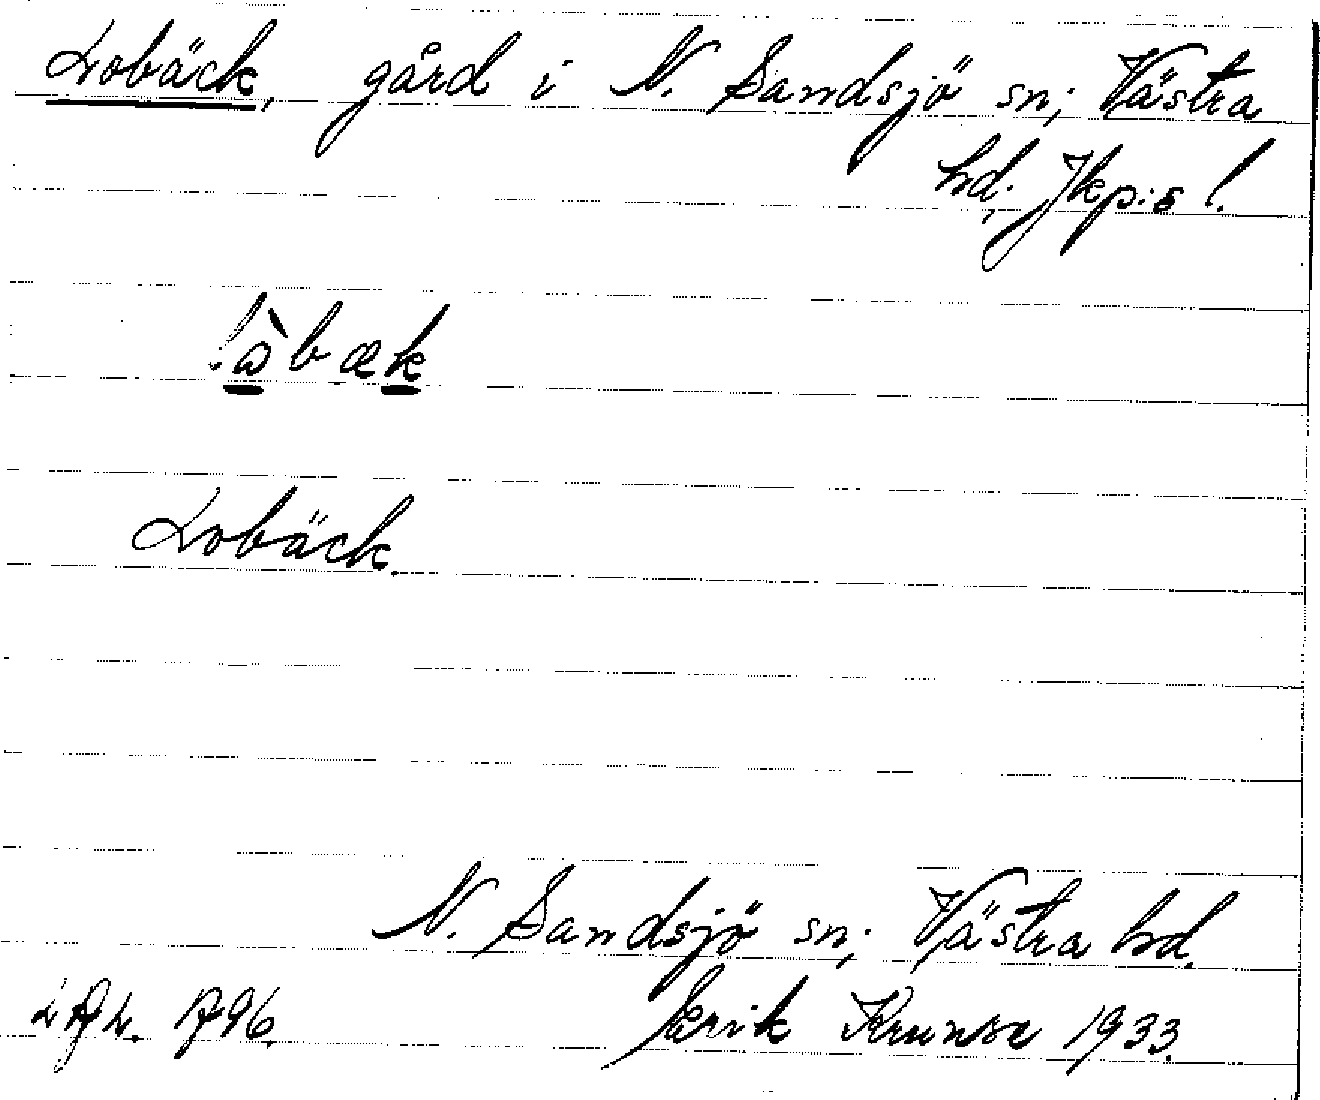 Lobäck, gård i N. Sandsjö sn; Västra
hd, Jkp:s l.
Lobäck.
N. Sandsjö sn; Västra hd.
1796. Erik 1933.